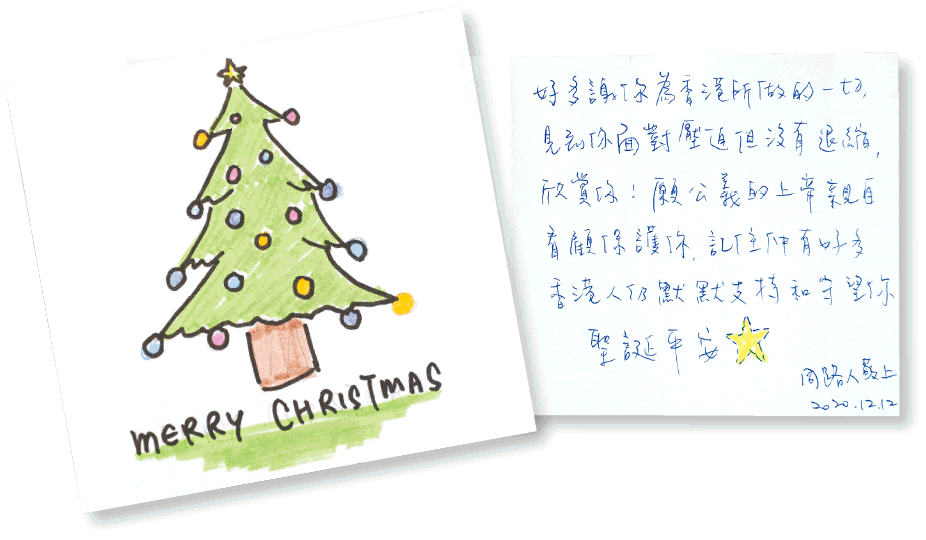 MERRY CHRISTMAS
好多謝你為香港所做的一切,
見到你面對壓逼但沒有退縮,
欣賞你！願公義的上帝親自
看顧保護你,記住仲有好多
香港人仍默默支持和守望你
聖誕平安
同路人敬上
2020.12.12